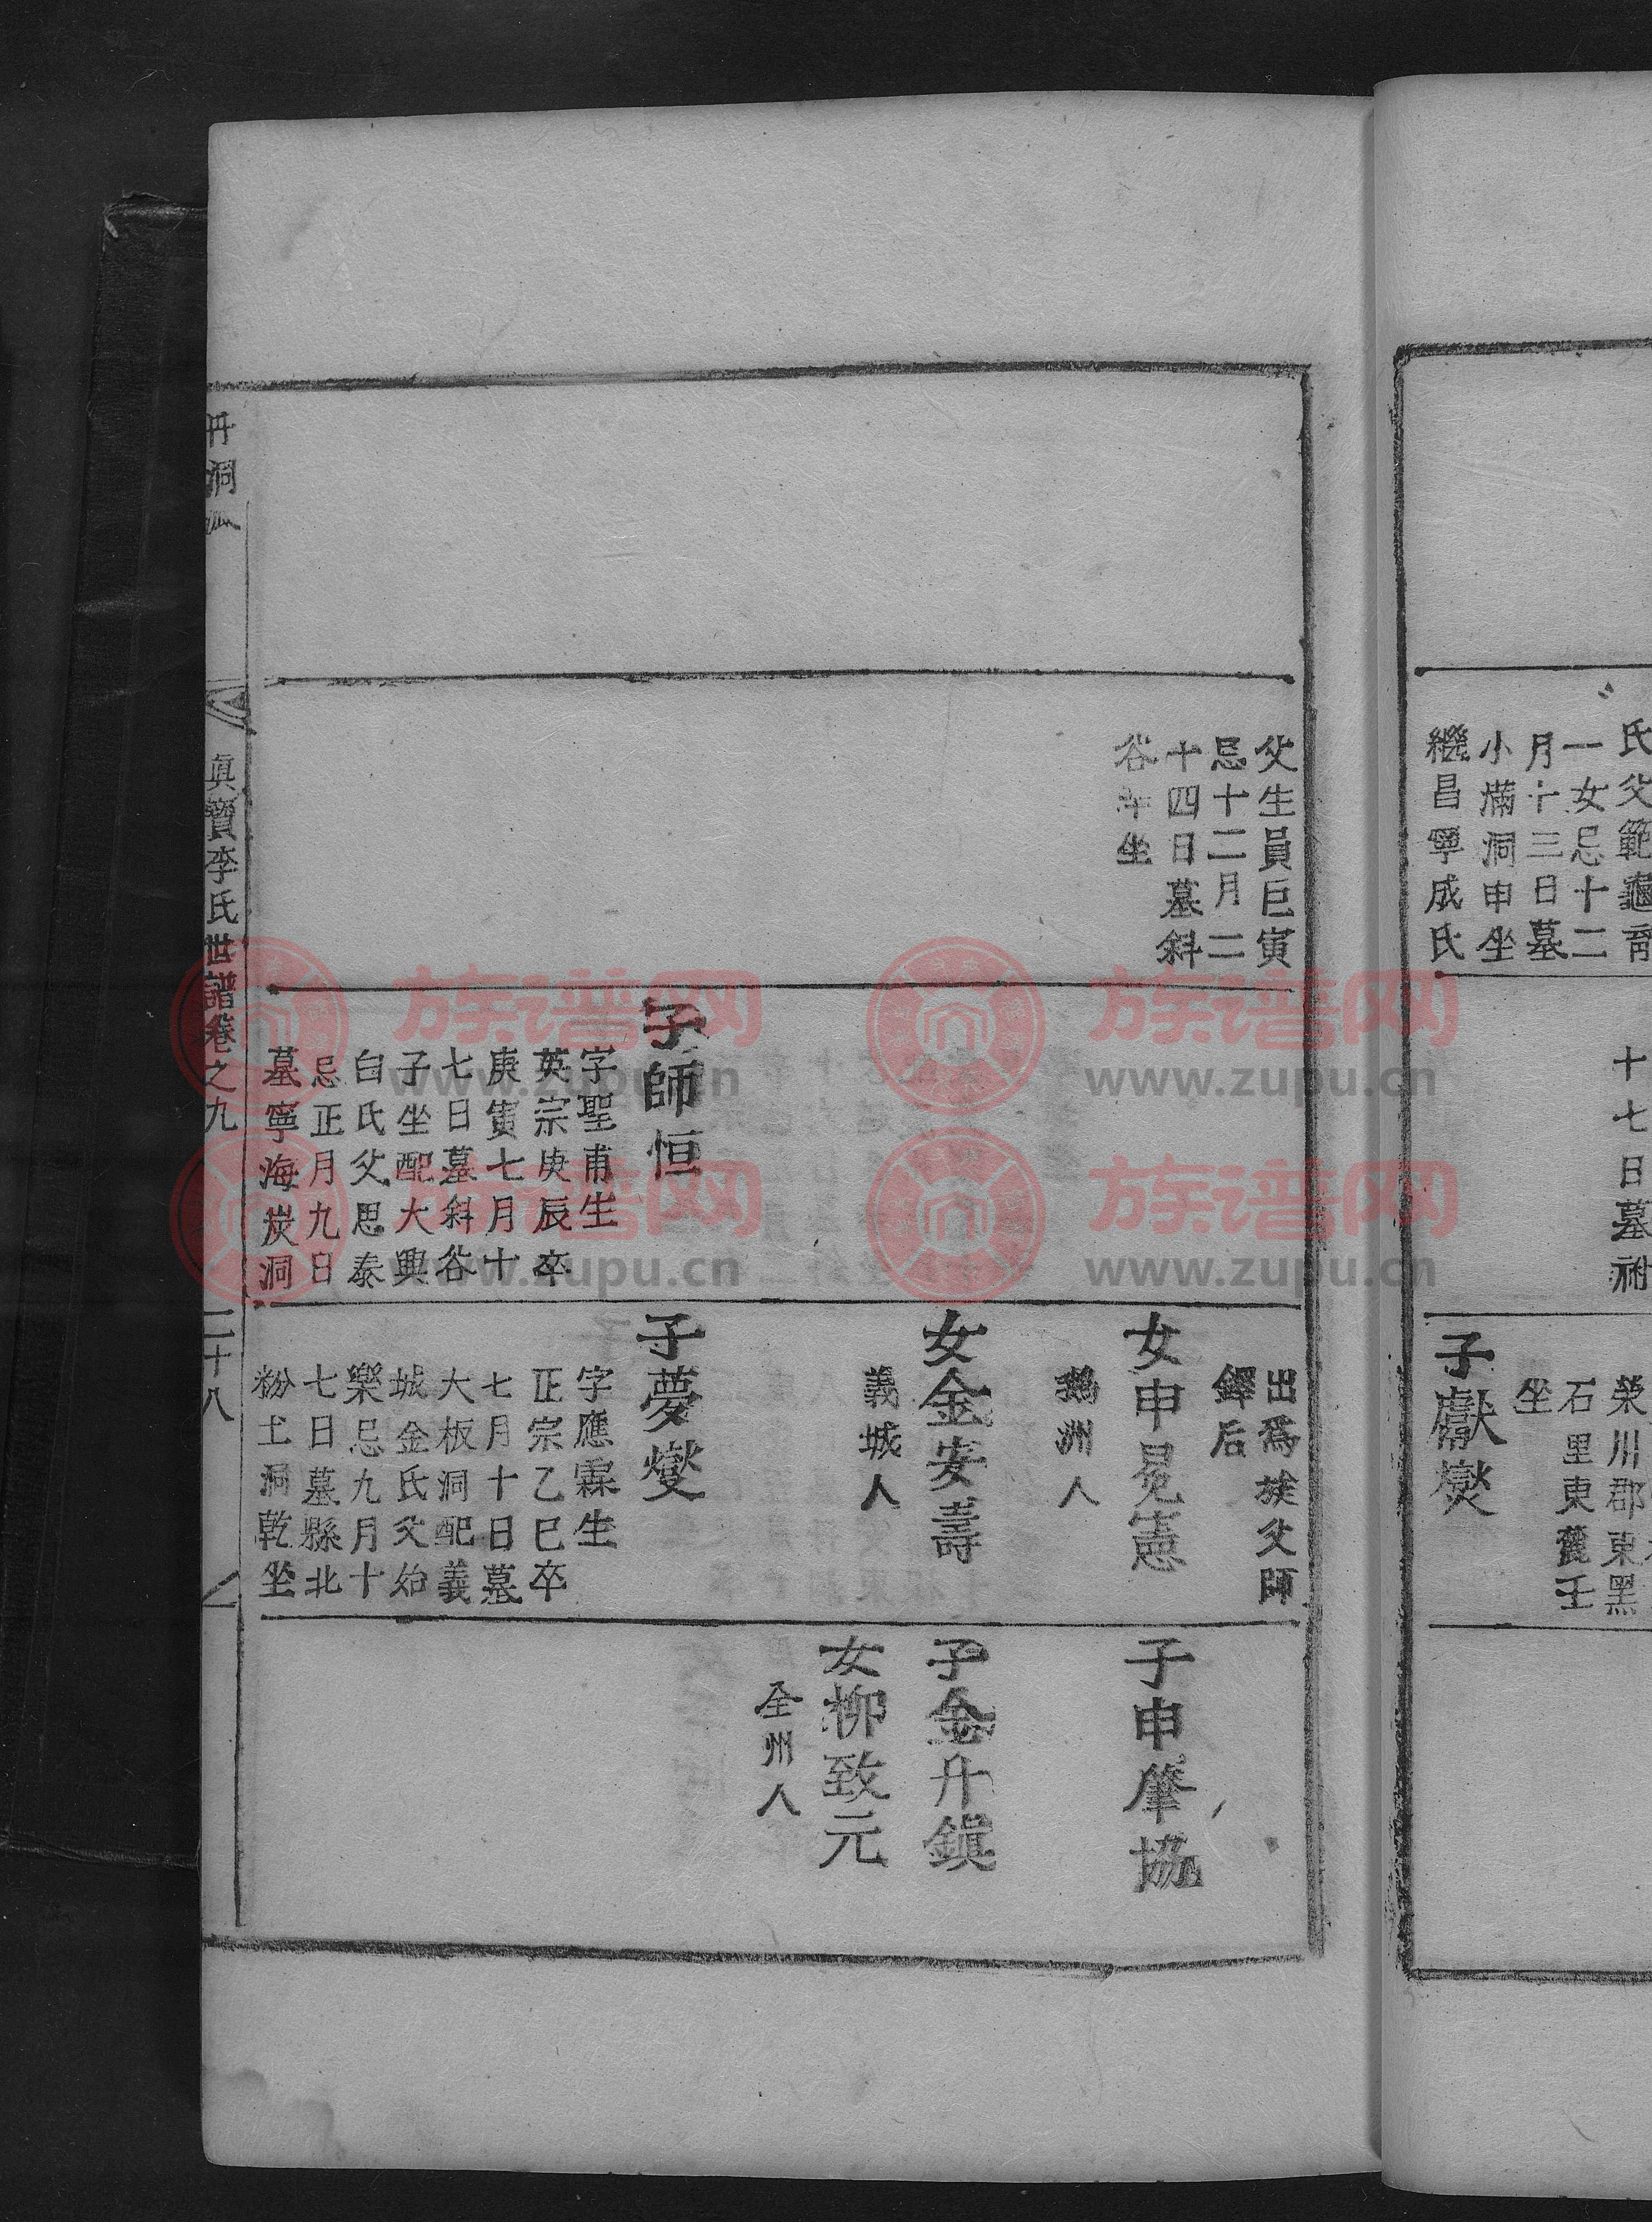 氏父範龜齊
一女忌十二
月十三日墓
小滿洞申坐
繼昌寧成氏
十七日墓祔
榮川郡東黑
石里東麓壬
坐
子獻燮
父生員巨寅
忌十二月二
十四日墓斜
谷 坐
子師恒
字聖甫生
英宗庚辰卒
庚寅七月十
七日墓斜谷
子坐配大興
白氏父思泰
忌正月九日
墓寧海炭洞
出爲族父師
鐸后
女申冕憲
鵝洲人
女金安壽
義城人
子夢燮
字應霖生
正宗乙巳卒
七月十日墓
大板洞配義
城金氏父始
樂忌九月十
七日墓縣北
粉土洞乾坐
子申肇協
子金升鎭
女柳致元
全州人
丹洞派
眞寶李氏世譜卷之九
二十八
族谱网
www.zupu.cn
族谱网
www.zupu.cn
族谱网
www.zupu.cn
族谱网
www.zupu.cn